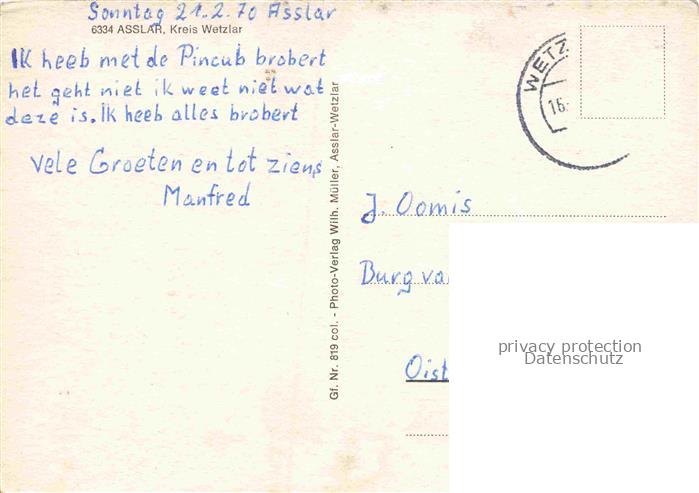 Sonntag 21.2.70 Asslar
6334 ASSLAR, Kreis Wetzlar
Ik heeb met de Pincub brobert
het geht niet ik weet niet wat
deze is. Ik heeb alles brobert
Vele Groeten en tot ziens
Manfred
Gf. Nr. 819 col. - Photo-Verlag Wilh. Müller, Asslar-Wetzlar
WETZ
16.
J. Oomis
Burg va
Oist
privacy protection
Datenschutz